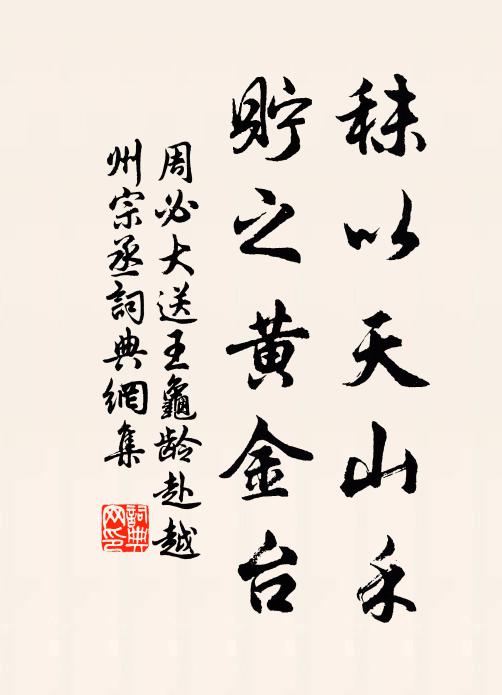 秣以天山禾
貯之黄金台
周必大送王龜龄赴越
州宗丞詞典網集
詞典
网印